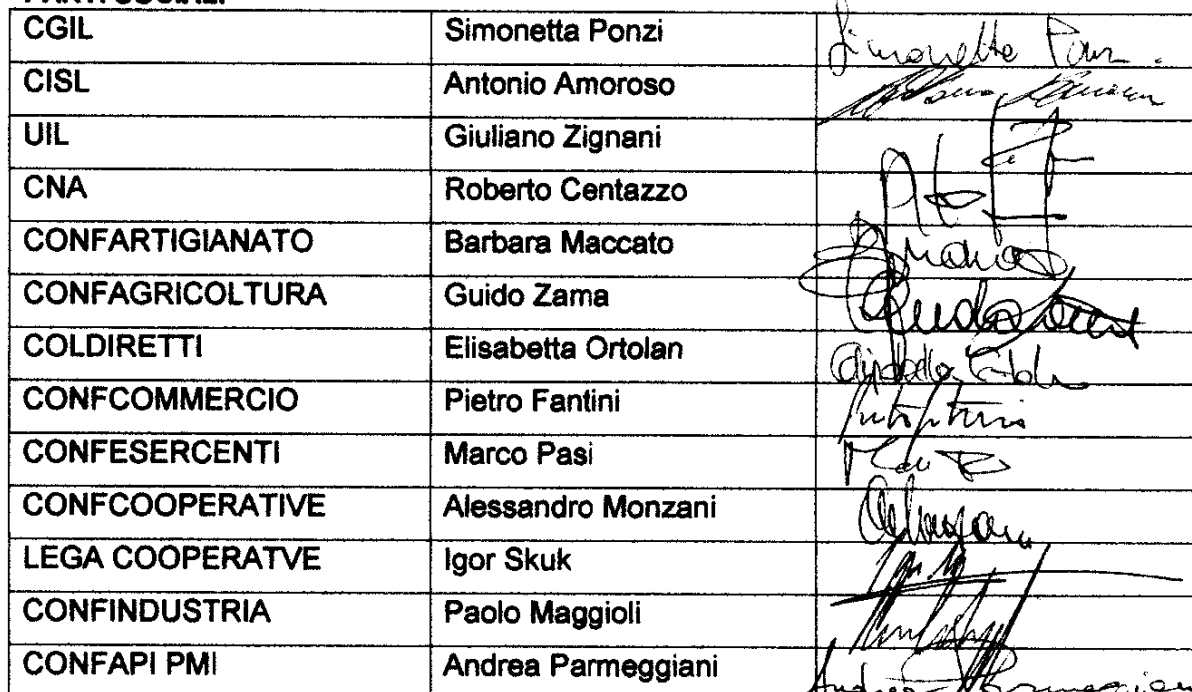 PARTI SOCIALI
CGIL Simonetta Ponzi Simonetta Ponzi
CISL Antonio Amoroso
UIL Giuliano Zignani
CNA Roberto Centazzo
CONFARTIGIANATO Barbara Maccato
CONFAGRICOLTURA Guido Zama
COLDIRETTI Elisabetta Ortolan
CONFCOMMERCIO Pietro Fantini
CONFESERCENTI Marco Pasi
CONFCOOPERATIVE Alessandro Monzani
LEGA COOPERATVE Igor Skuk
CONFINDUSTRIA Paolo Maggioli
CONFAPI PMI Andrea Parmeggiani Andrea Parmeggiani